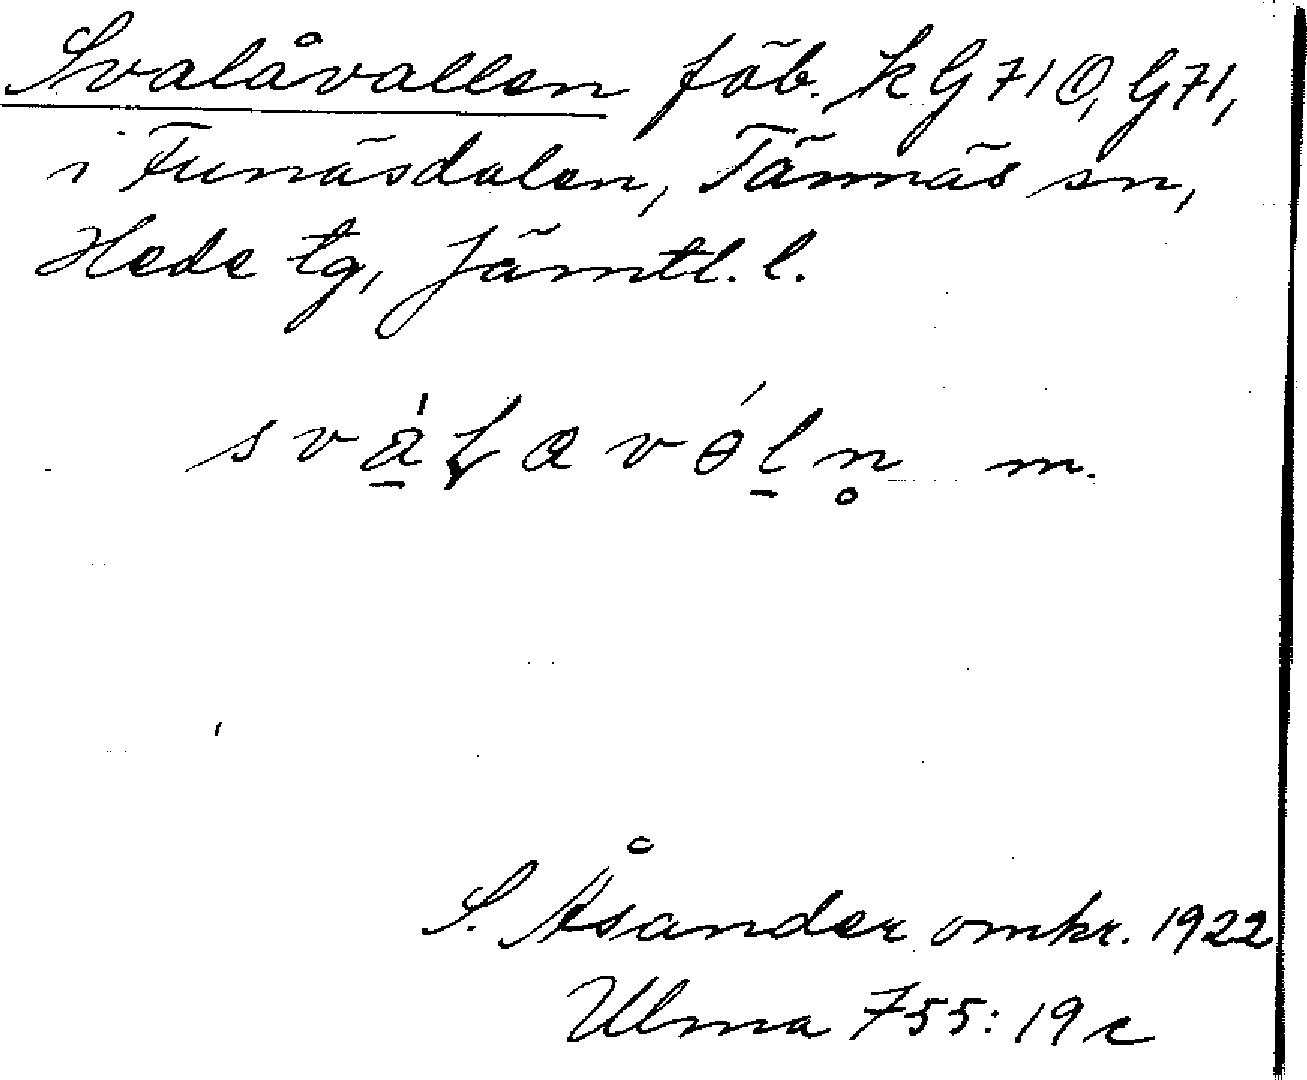 Svalåvallen fäb. k G 71 Ö, G 71,
i Funäsdalen, Tännäs sn,
Hede tg, Jämtl. l.
m.
S. Åsander omkr. 1922
Ulma 755: 19 c